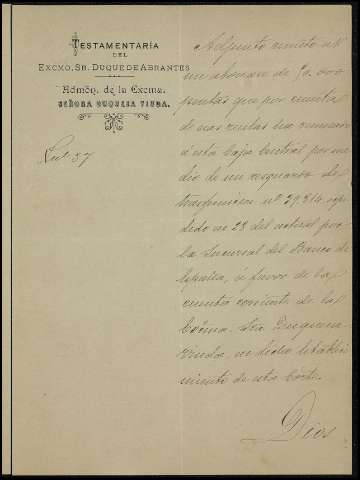 TESTAMENTARÍA
DEL
EXCMO. SR. DUQUE DE ABRANTES
Admón. de la Excma.
SEÑORA DUQUESA VIUDA.
37
Adjunto remito
un abonaré de
pesetas que por cuenta
de sus rentas ha remesado
á esta Caja Central por me
dio de un resguardo de
trasferencia nº 29.314 expe
dido en 23 del actual por
la Sucursal del Banco de
España, á favor de la
cuenta corriente de la
Excma. Sra. Duquesa
Viuda, en dicho estableci
miento de esta Corte.
Dios